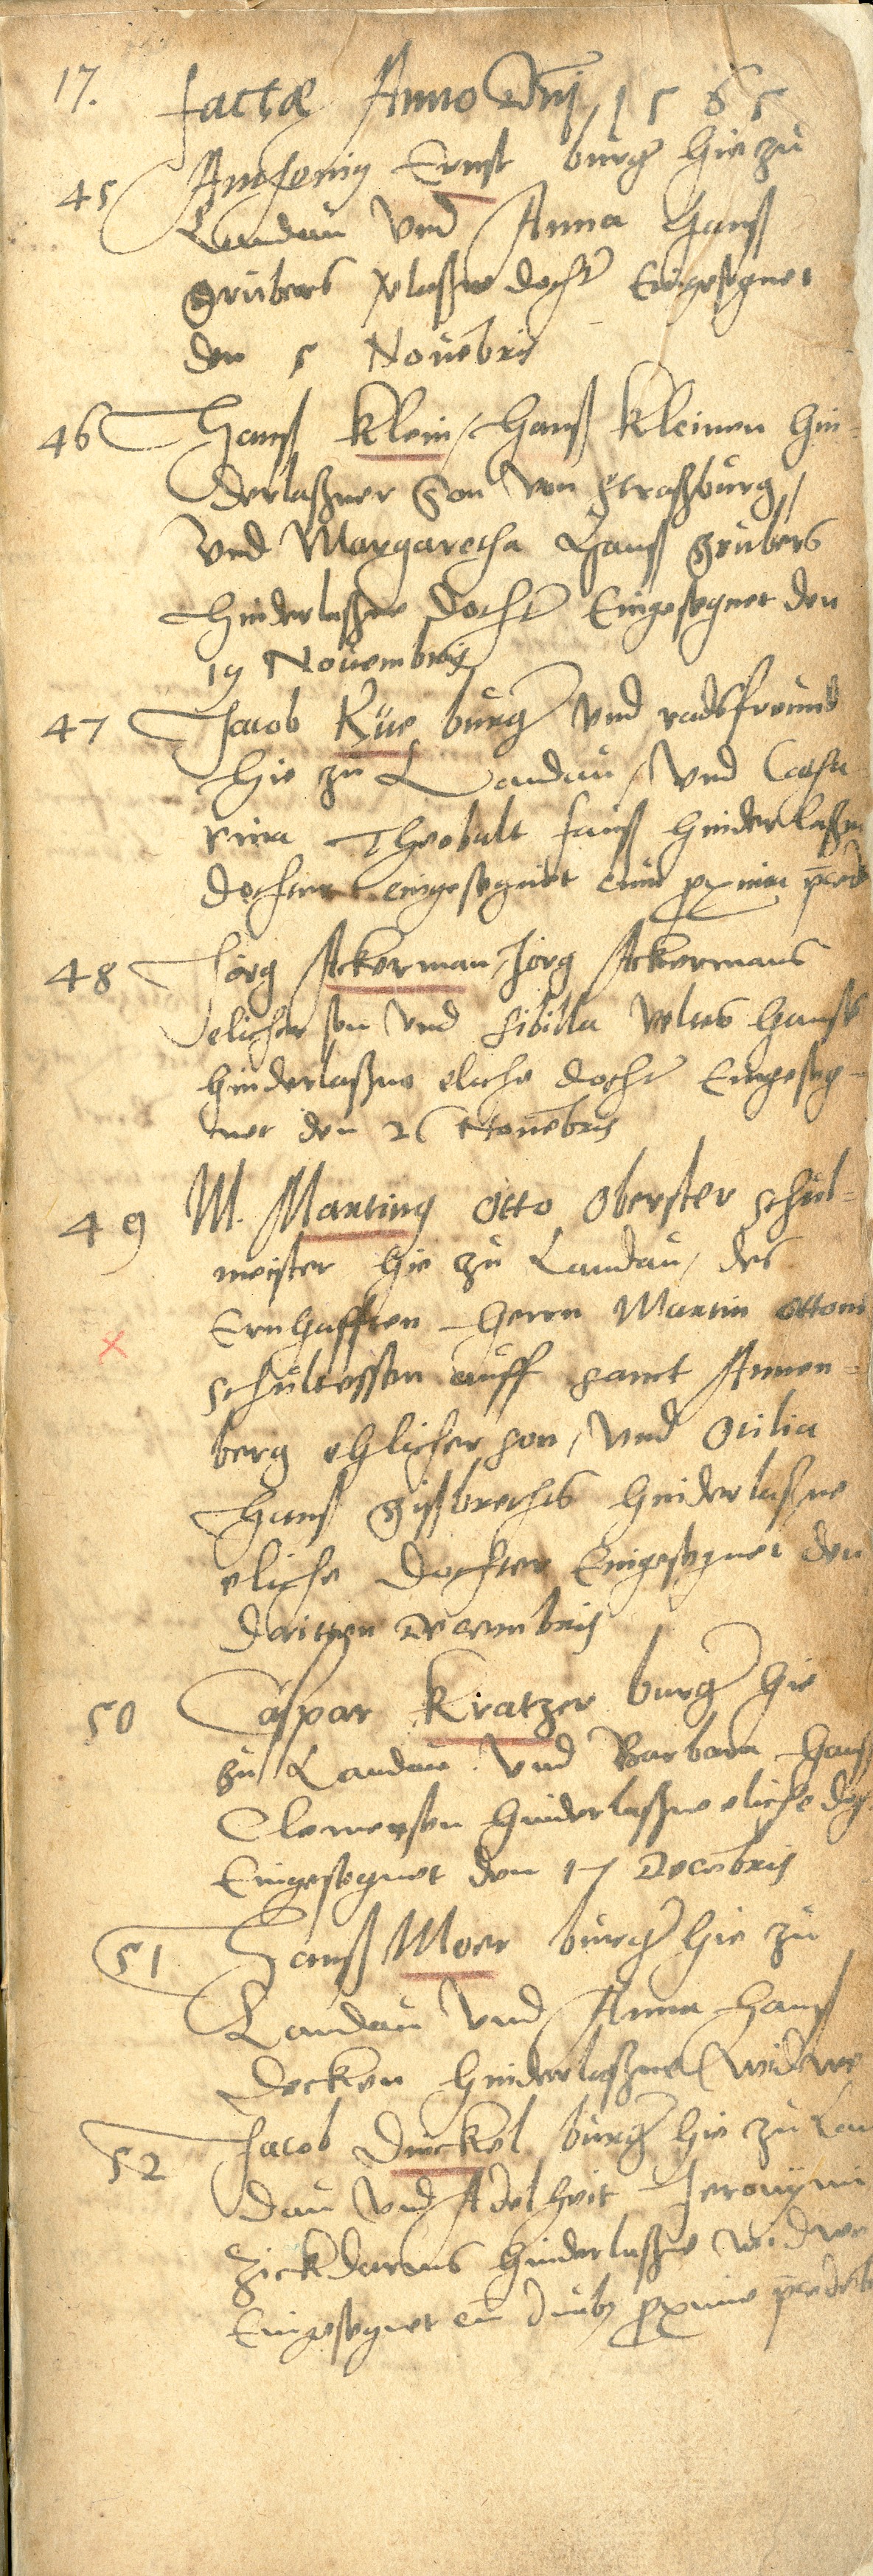 17. factæ Anno Dnj 1565
45 Anthonig Ernst burger hie zu
Landau vnd Anna Hanß
grubers v̈laßne dochter Eingesegnet
den 5 Nouebris
46 Hanß Klein / Hanß Kleinen hin-
derlaßner Son von Straßburg /
vnd Margaretha Hanß grubers
hinderlaßne dochter Eingesegnet den
19 Nouembris
47 Jacob Küe burger vnd radsfreund
hie zu Landau / vnd Catha
rina Theobalt fauß hinderlaßn
dochter eingesegnet cum proxima
48 Jörg Ackerman, Jörg Ackermans
elicher son vnd Sibilla Veltes Hanß
hinderlaßne eliche dochter Eingeseg-
net den 26 Nouebris
49 M. Marting Otto Oberster schul-
meister hie zu Landau / des
Ernhafften Herrn Martin Ottoni
schultessen auff sanct Annen-
berg ehlicher son / vnd Otilia
Hanß gißbrechts hinderlaßne
eliche dochter Eingesegnet den
dritten Decembris
50 Caspar Kratzer burger hie
zu Landau vnd Barbara Hanß
Clemenßen hinderlaßne eliche doch
Eingesegnet den 17 Decebris
51 Hanß Moer burger hie zu
Landau vnd Anna Hanß
Decken hinderlaßne widwe
52 Jacob Dückel burger hie zu Lan
dau vnd Adelheit Jeronymi
Zickdarms hinderlaßne widwe
Eingesegnet cu duobg proxime